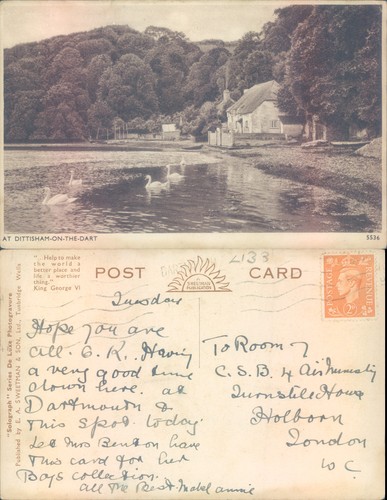 AT DITTISHAM-ON-THE-DART
5536
"Solograph" Series De Luxe Photogravure
Published by E. A. SWEETMAN & SON, Ltd., Tunbridge Wells
".. Help to make
the world a
better place and
life a worthier
thing."
King George VI
POST
CARD
L133
POSTAGE
REVENUE
Tuesday
Hope you are
all O.K. Having
a very good time
down here. at
Dartmouth &
this spot today
Let Mrs Benton have
this card for her
Boys collection.
All the Best Mabel annie
To Room 7
C.S.B. 4 Air Ministry
Turnstile House
Holborn
London
W C